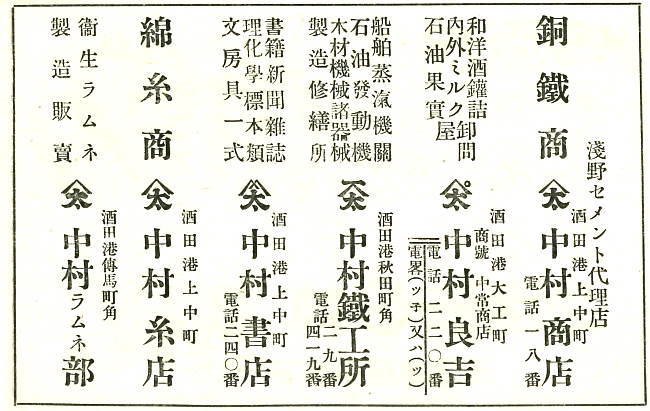 淺野セメント代理店
銅鐵商
太
酒田港上中町
中村商店
電話一八番
和洋酒罐詰
內外ミルク卸問屋
石油果實
太
酒田港大工町
商號 中常商店
中村良吉
電話二二〇番
電畧(ツ子)又ハ(ツ)
船舶蒸汽機關
石油發動機
木材機械諸器械
製造修繕所
太
酒田港秋田町角
中村鐵工所
電話二九番
四一九番
書籍新聞雜誌
理化學標本類
文房具一式
太
酒田港上中町
中村書店
電話二四〇番
綿糸商
太
酒田港上中町
中村糸店
衞生ラムネ
製造販賣
太
酒田港傳馬町角
中村ラムネ部